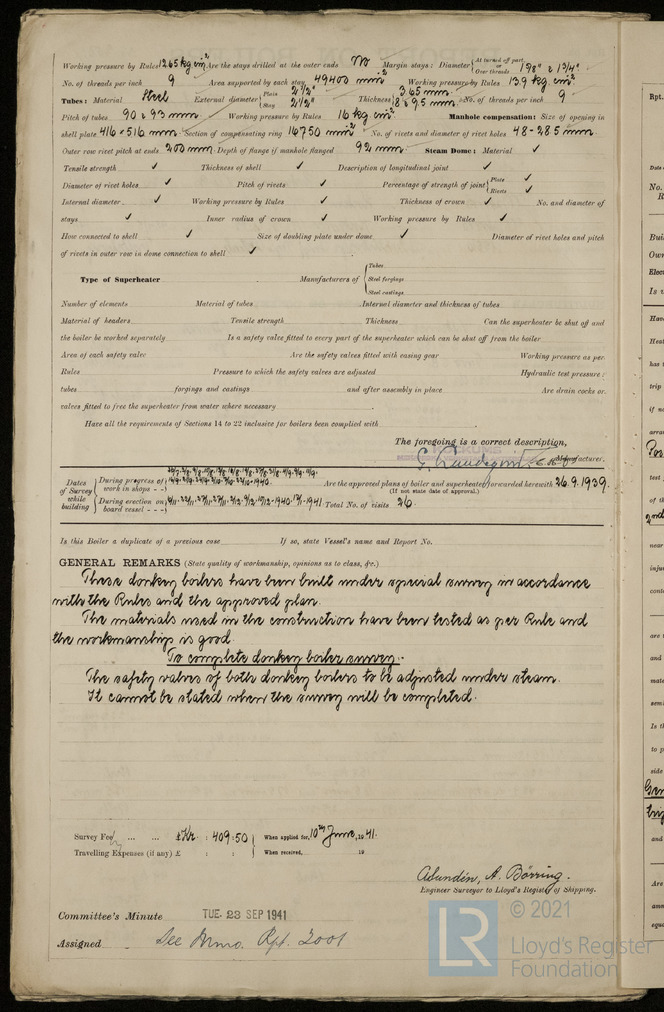 Working pressure by Rules 12.65 kg cm² Are the stays drilled at the outer ends No Margin stays: Diameter { At turned off part or Over threads 1 7/8" & 1 3/4"
No. of threads per inch 9 Area supported by each stay 49400 mm² Working pressure by Rules 13.9 kg. cm²
Tubes: Material Steel External diameter { Plain 2 1/2" Stay 2 1/2" Thickness { 3.65 mm. 8 & 9.5 mm. No. of threads per inch 9
Pitch of tubes 90 & 93 mm. Working pressure by Rules 16 kg. cm² Manhole compensation: Size of opening in
shell plate 416 × 516 mm. Section of compensating ring 16750 mm² No. of rivets and diameter of rivet holes 48 - 28.5 mm.
Outer row rivet pitch at ends 200 mm. Depth of flange if manhole flanged 92 mm. Steam Dome: Material ✓
Tensile strength ✓ Thickness of shell ✓ Description of longitudinal joint ✓
Diameter of rivet holes ✓ Pitch of rivets ✓ Percentage of strength of joint { Plate ✓ Rivets ✓
Internal diameter ✓ Working pressure by Rules ✓ Thickness of crown ✓ No. and diameter of
stays ✓ Inner radius of crown ✓ Working pressure by Rules ✓
How connected to shell ✓ Size of doubling plate under dome ✓ Diameter of rivet holes and pitch
of rivets in outer row in dome connection to shell ✓
Type of Superheater Manufacturers of { Tubes Steel forgings Steel castings
Number of elements Material of tubes Internal diameter and thickness of tubes
Material of headers Tensile strength Thickness Can the superheater be shut off and
the boiler be worked separately Is a safety valve fitted to every part of the superheater which can be shut off from the boiler
Area of each safety valve Are the safety valves fitted with easing gear Working pressure as per
Rules Pressure to which the safety valves are adjusted Hydraulic test pressure:
tubes forgings and castings and after assembly in place Are drain cocks or
valves fitted to free the superheater from water where necessary
Have all the requirements of Sections 14 to 22 inclusive for boilers been complied with
The foregoing is a correct description,
Manufacturer.
Dates of Survey while building { During progress of work in shops - - Are the approved plans of boiler and superheater forwarded herewith 26.9.1939
(If not state date of approval.)
During erection on board vessel - - - Total No. of visits 26.
Is this Boiler a duplicate of a previous case If so, state Vessel's name and Report No.
GENERAL REMARKS (State quality of workmanship, opinions as to class, &c.)
These donkey boilers have been built under special survey in accordance
with the Rules and the approved plan.
The materials used in the construction have been tested as per Rule and
the workmanship is good.
To complete donkey boiler survey.
The safety valves of both donkey boilers to be adjusted under steam.
It cannot be stated when the survey will be completed.
Survey Fee ... ... £Kr. : 409:50 When applied for, 10th June, 1941.
Travelling Expenses (if any) £ : : When received, 19
A. Börring.
Engineer Surveyor to Lloyd's Register of Shipping.
Committee's Minute TUE. 23 SEP 1941
Assigned See Rpt.
LR © 2021
Lloyd's Register
Foundation